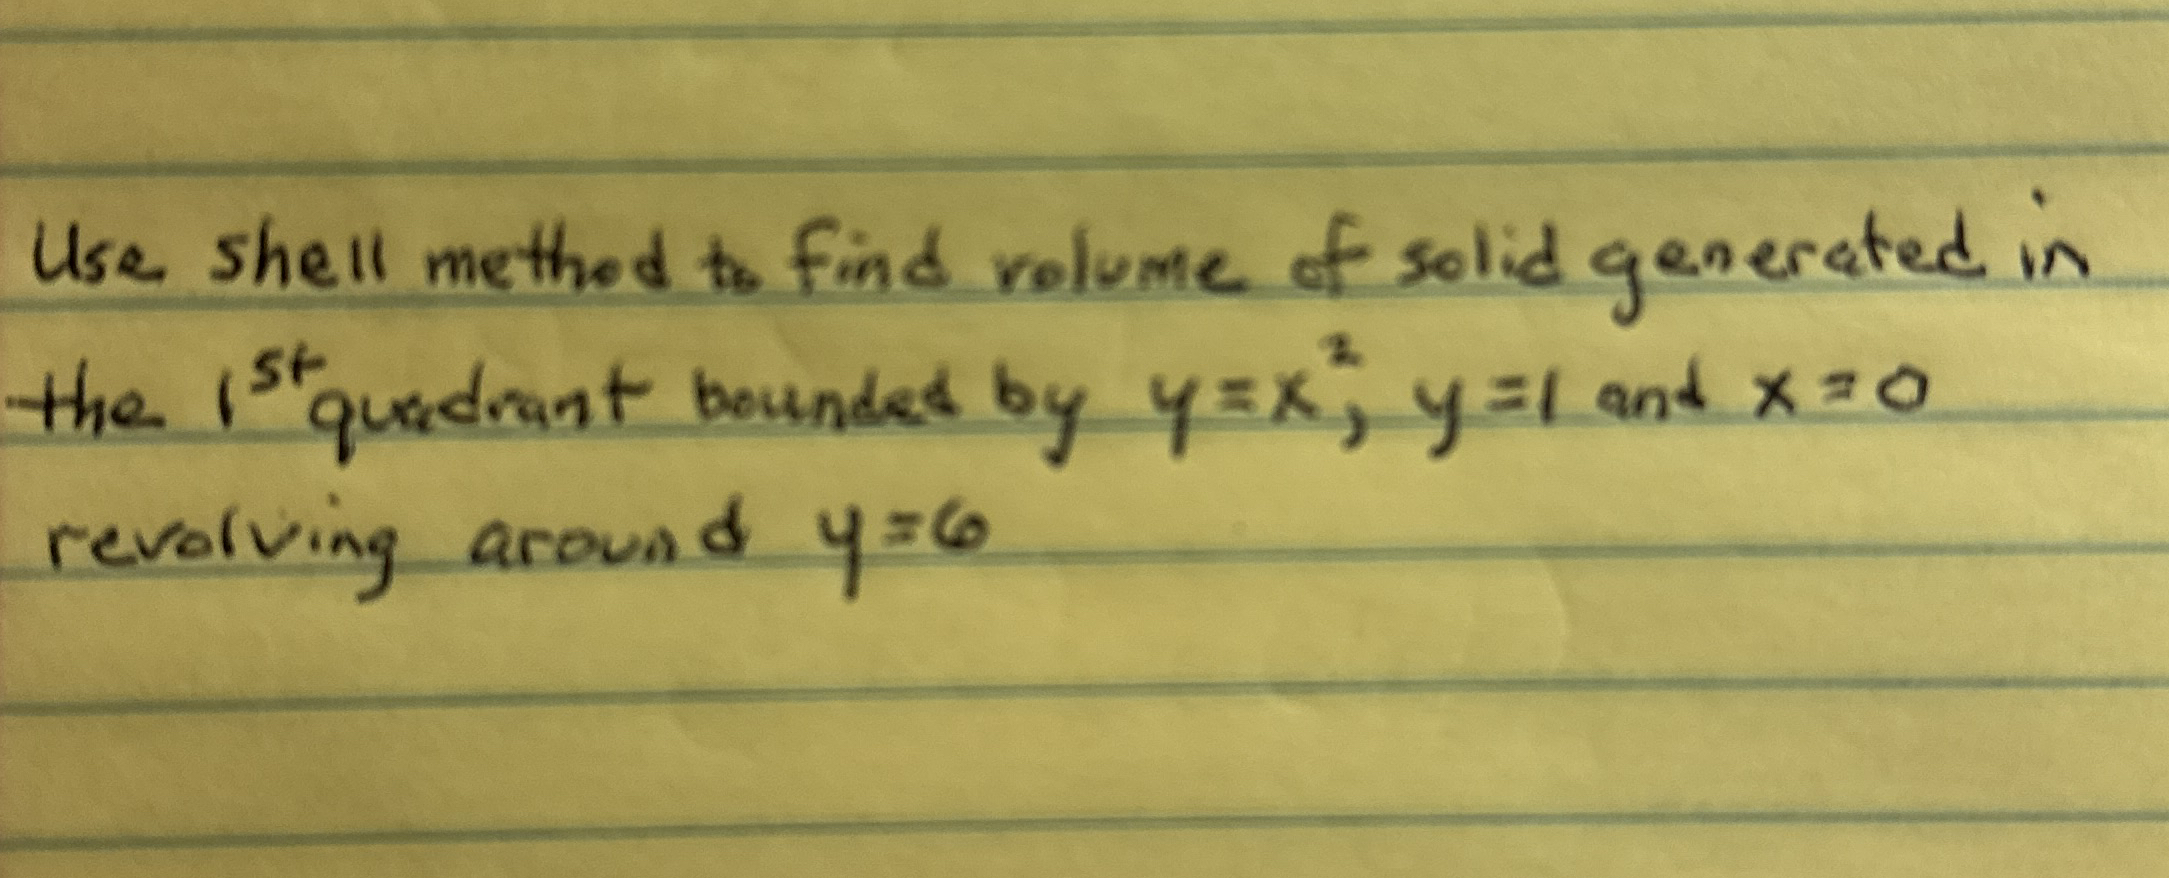 Use shell method to find volume of solid generated in
the 1st quadrant bounded by y=x², y=1 and x=0
revolving around y=6